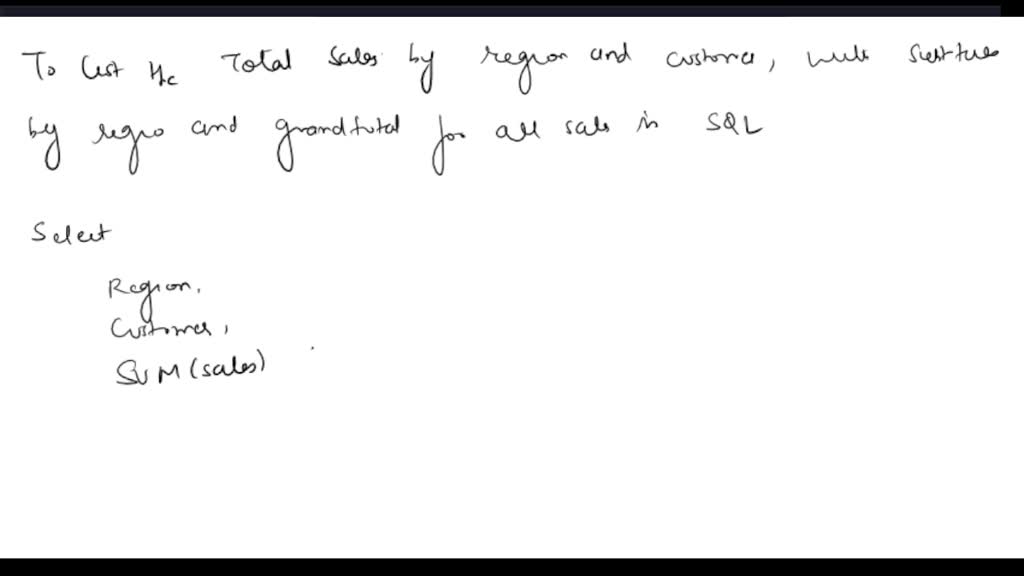 To List the Total Sales by region and customer, with
by regio and grandtotal for all sales in SQL
Select
Region,
Customer,
SUM(sales)